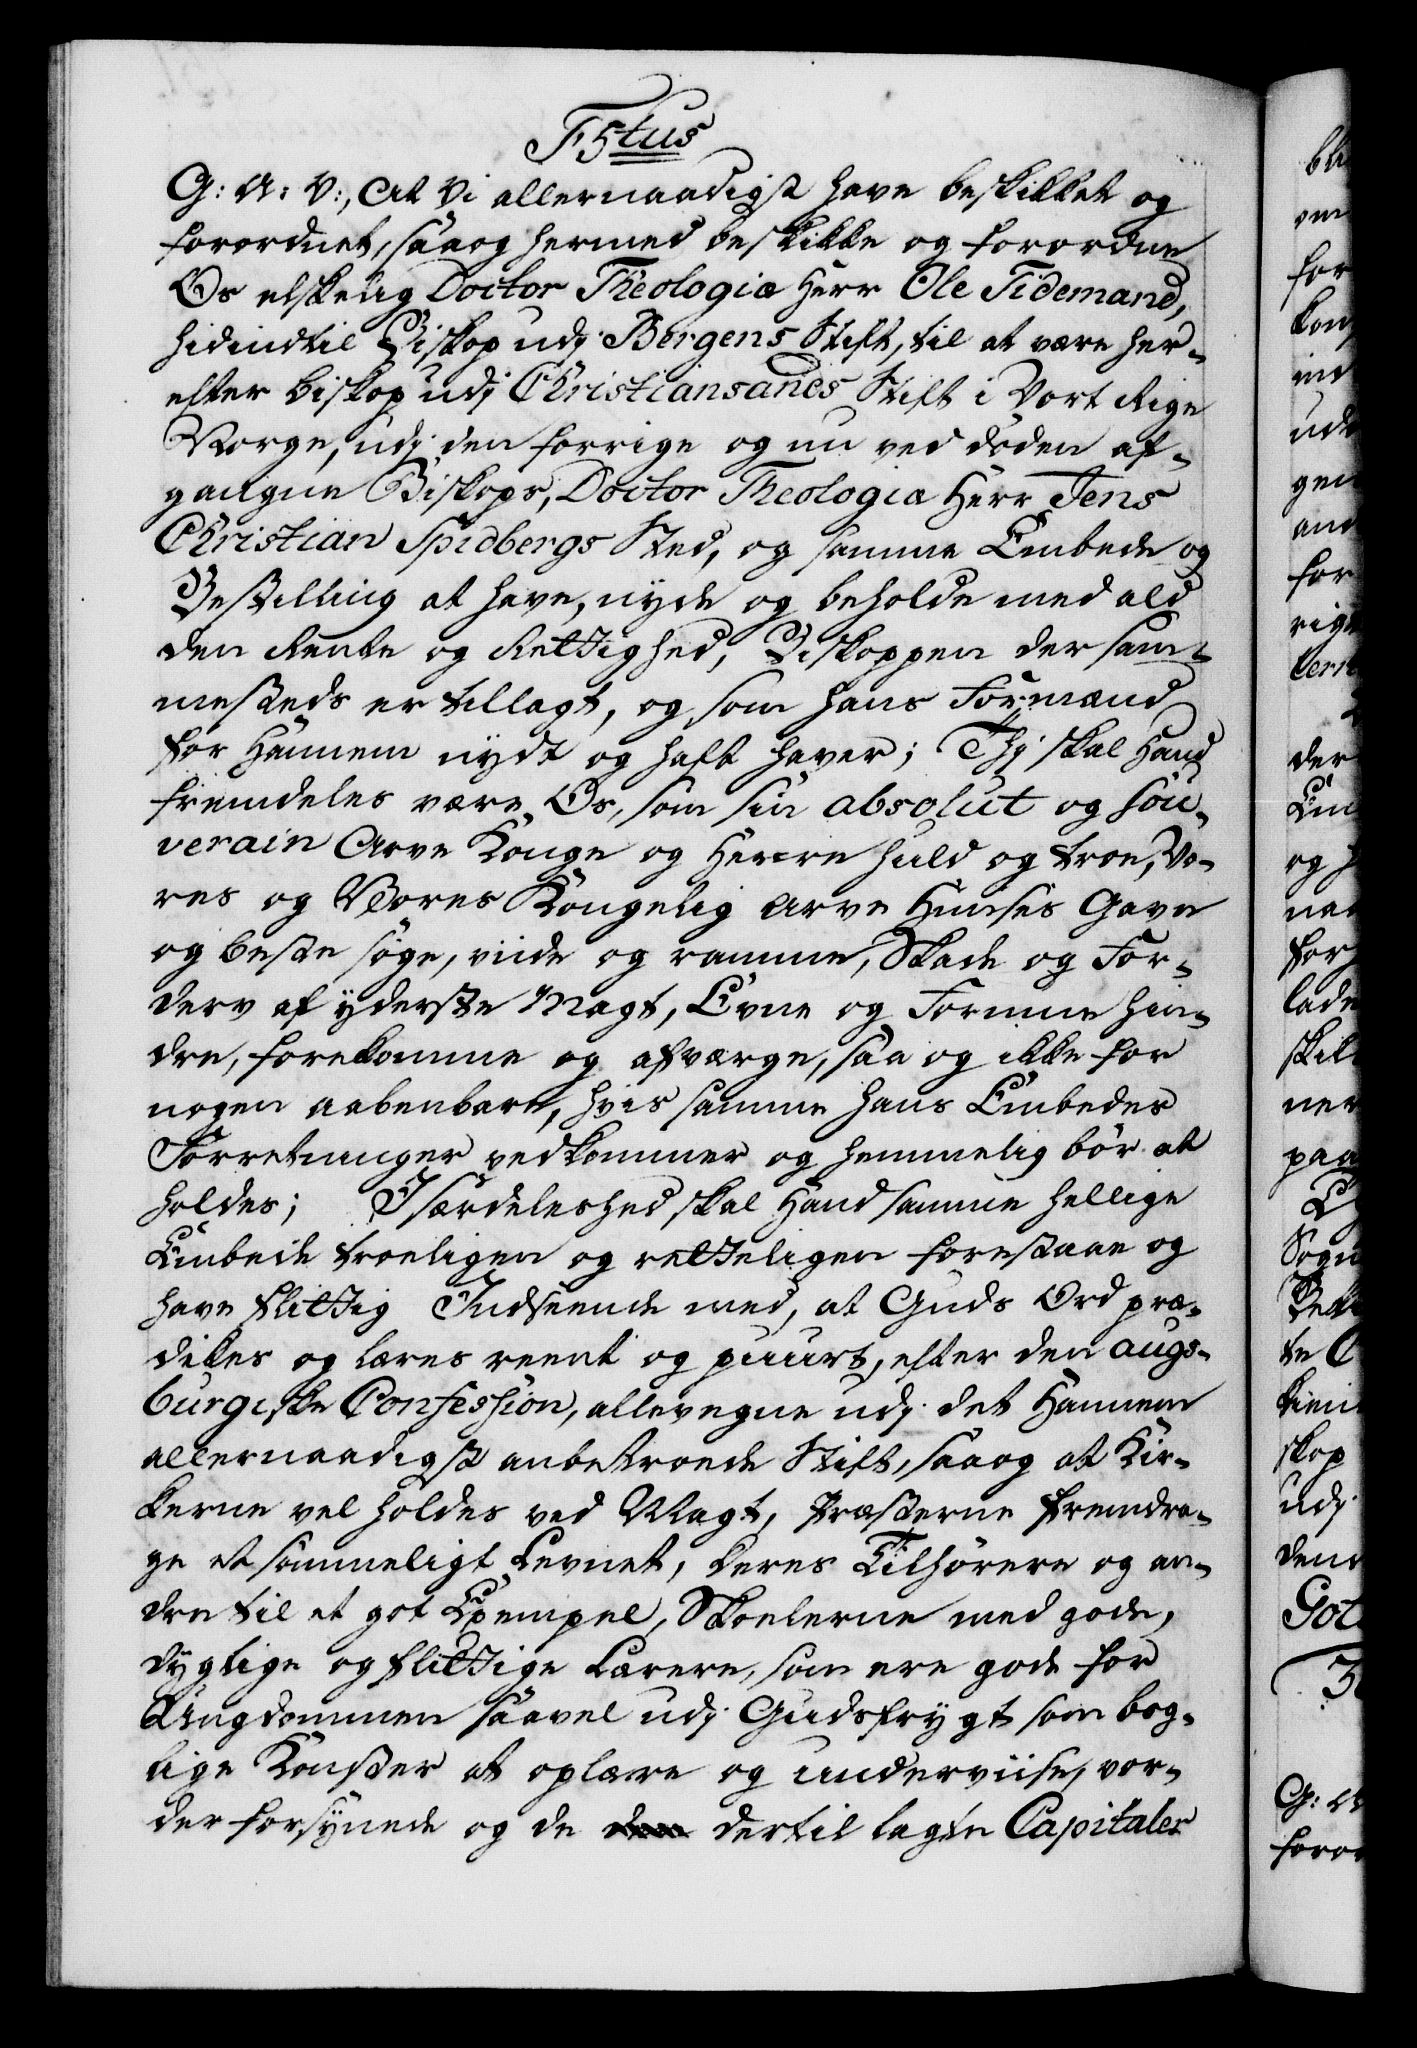 F5tus
G: A: V:, At Vi allernaadigst have beskikket og
forordnet, saaog hermed beskikke og forordne
Os elskelig Doctor Theologiæ Herr Ole Tidemand,
hidindtil Biskop udj Bergens Stift, til at være her-
efter Biskop udj Christiansands Stift i Vort Rige
Norge, udj den forrige og nu ved döden af-
gangne Biskops, Doctor Theologiæ Herr Jens
Christian Spidbergs Sted, og samme Embede og
Bestilling at have, nyde og beholde med ald
den Rente og Rettighed, Biskoppen der sam-
mesteds er tillagt, og som hans Formænd
for Hannem nydt og haft haver; Thj skal Hand
fremdeles være Os, som sin absolut og sou-
verain Arve Konge og Herre huld og troe, Vo-
res og Vores Kongelig Arve Huuses Gavn
og beste söge, viide og ramme, Skade og For-
derv af yderste Magt, Evne og Formue hin-
dre, forekomme og afværge, saa og ikke for
nogen aabenbare, hvis samme hans Embedes
Forretninger vedkommer og hemmelig bör at
holdes; Jsærdeleshed skal Hand samme hellige
Embede troeligen og retteligen forestaae og
have flittig Indseende med, at Guds Ord præ-
dikes og læres reent og puurt, efter den augs-
burgiske Confession, allevegne udj det Hannem
allernaadigst anbetroede Stift, saaog at Kir-
kerne vel holdes ved Magt, Præsterne fremdra-
ge et sömmeligt Levnet, deres Tilhörere og an-
dre til et got Exempel, Skoelerne med gode,
dygtige og flittige Lærere, som ere gode for
Ungdommen saavel udj Gudsfrygt som bog-
lige Konster at oplære og underviise, vor-
der forsynede og de dertil lagte Capitaler